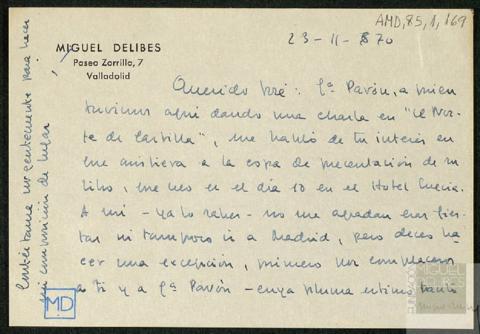 AMD,85,1,169
MIGUEL DELIBES
Paseo Zorrilla, 7
Valladolid
23-11-70
Querido José: Gª Pavón, a quien
tuvimos aquí dando una charla en "El Nor-
te de Castilla", me habló de tu interés en
que asistiera a la copa de presentación de tu
libro, que es el día 10 en el Hotel Suecia.
A mí - ya lo sabes - no me agradan esas fies-
tas ni tampoco ir a Madrid, pero deseo ha-
cer una excepción, primero por complaceros
a ti y a Gª Pavón - cuya pluma estimo tanto
Contéstame urgentemente para hacer
mi composición de lugar
MD
FUNDACIÓN
MIGUEL
DELIBES